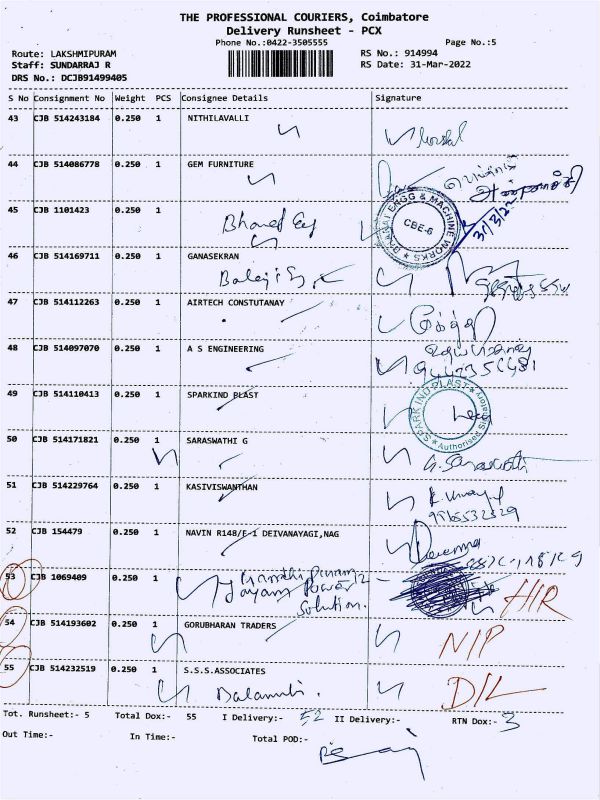 THE PROFESSIONAL COURIERS, Coimbatore
Delivery Runsheet - PCX
Phone No.:0422-3505555 Page No.:5
Route: LAKSHMIPURAM RS No.: 914994
Staff: SUNDARRAJ R RS Date: 31-Mar-2022
DRS No.: DCJB91499405
S No Consignment No Weight PCS Consignee Details Signature
43 CJB 514243184 0.250 1 NITHILAVALLI
44 CJB 514086778 0.250 1 GEM FURNITURE
45 CJB 1101423 0.250 1
BHARAT ENGG & MACHINE WORKS
CBE-6
31/3/22
46 CJB 514169711 0.250 1 GANASEKRAN
47 CJB 514112263 0.250 1 AIRTECH CONSTUTANAY
48 CJB 514097070 0.250 1 A S ENGINEERING
49 CJB 514110413 0.250 1 SPARKIND PLAST
SPARK IND PLAST
Authorised Signatory
50 CJB 514171821 0.250 1 SARASWATHI G
G. Saraswathi
51 CJB 514229764 0.250 1 KASIVISWANTHAN
52 CJB 154479 0.250 1 NAVIN R148/E-1 DEIVANAYAGI,NAG
53 CJB 1069409 0.250 1
Power
Solution.
54 CJB 514193602 0.250 1 GORUBHARAN TRADERS
N/P
55 CJB 514232519 0.250 1 S.S.S.ASSOCIATES
D/L
Tot. Runsheet:- 5 Total Dox:- 55 I Delivery:- 52 II Delivery:- RTN Dox:- 3
Out Time:- In Time:- Total POD:-